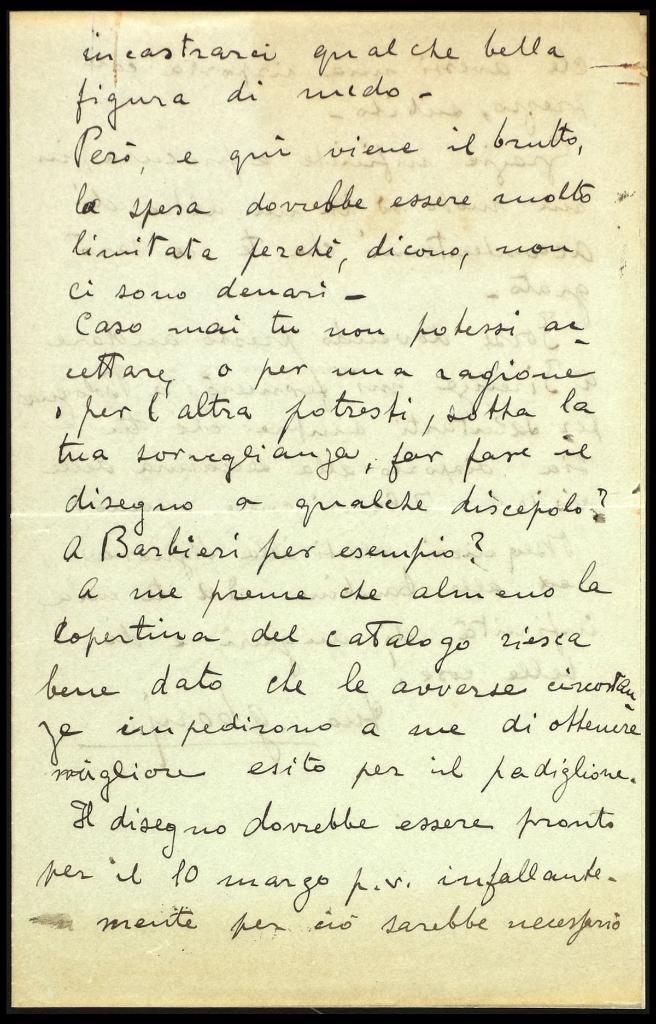 incastrarci qualche bella
figura di nudo –
Però, e qui viene il brutto,
la spesa dovrebbe essere molto
limitata perchè, dicono, non
ci sono denari –
Caso mai tu non potessi ac
cettare, o per una ragione
o per l'altra potresti, sotto la
tua sorveglianza, far fare il
disegno a qualche discepolo?
A Barbieri per esempio?
A me preme che almeno la
Copertina del catalogo riesca
bene dato che le avverse circostan
ze impedirono a me di ottenere
migliore esito per il padiglione.
Il disegno dovrebbe essere pronto
per il 10 marzo p.v. infallante-
mente per ciò sarebbe necessario